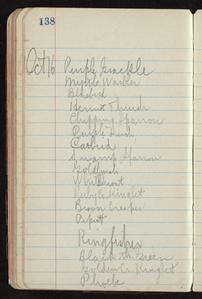 138
Oct 16 Purple Grackle
Myrtle Warbler
Bluebird
Hermit Thrush
Chipping Sparrow
Purple Finch
Catbird
Swamp Sparrow
Goldfinch
White throat
Ruby Cr. Kinglet
Brown Creeper
Pipit
Kingfisher
Black Th. Green
Golden Cr. Kinglet
Phoebe